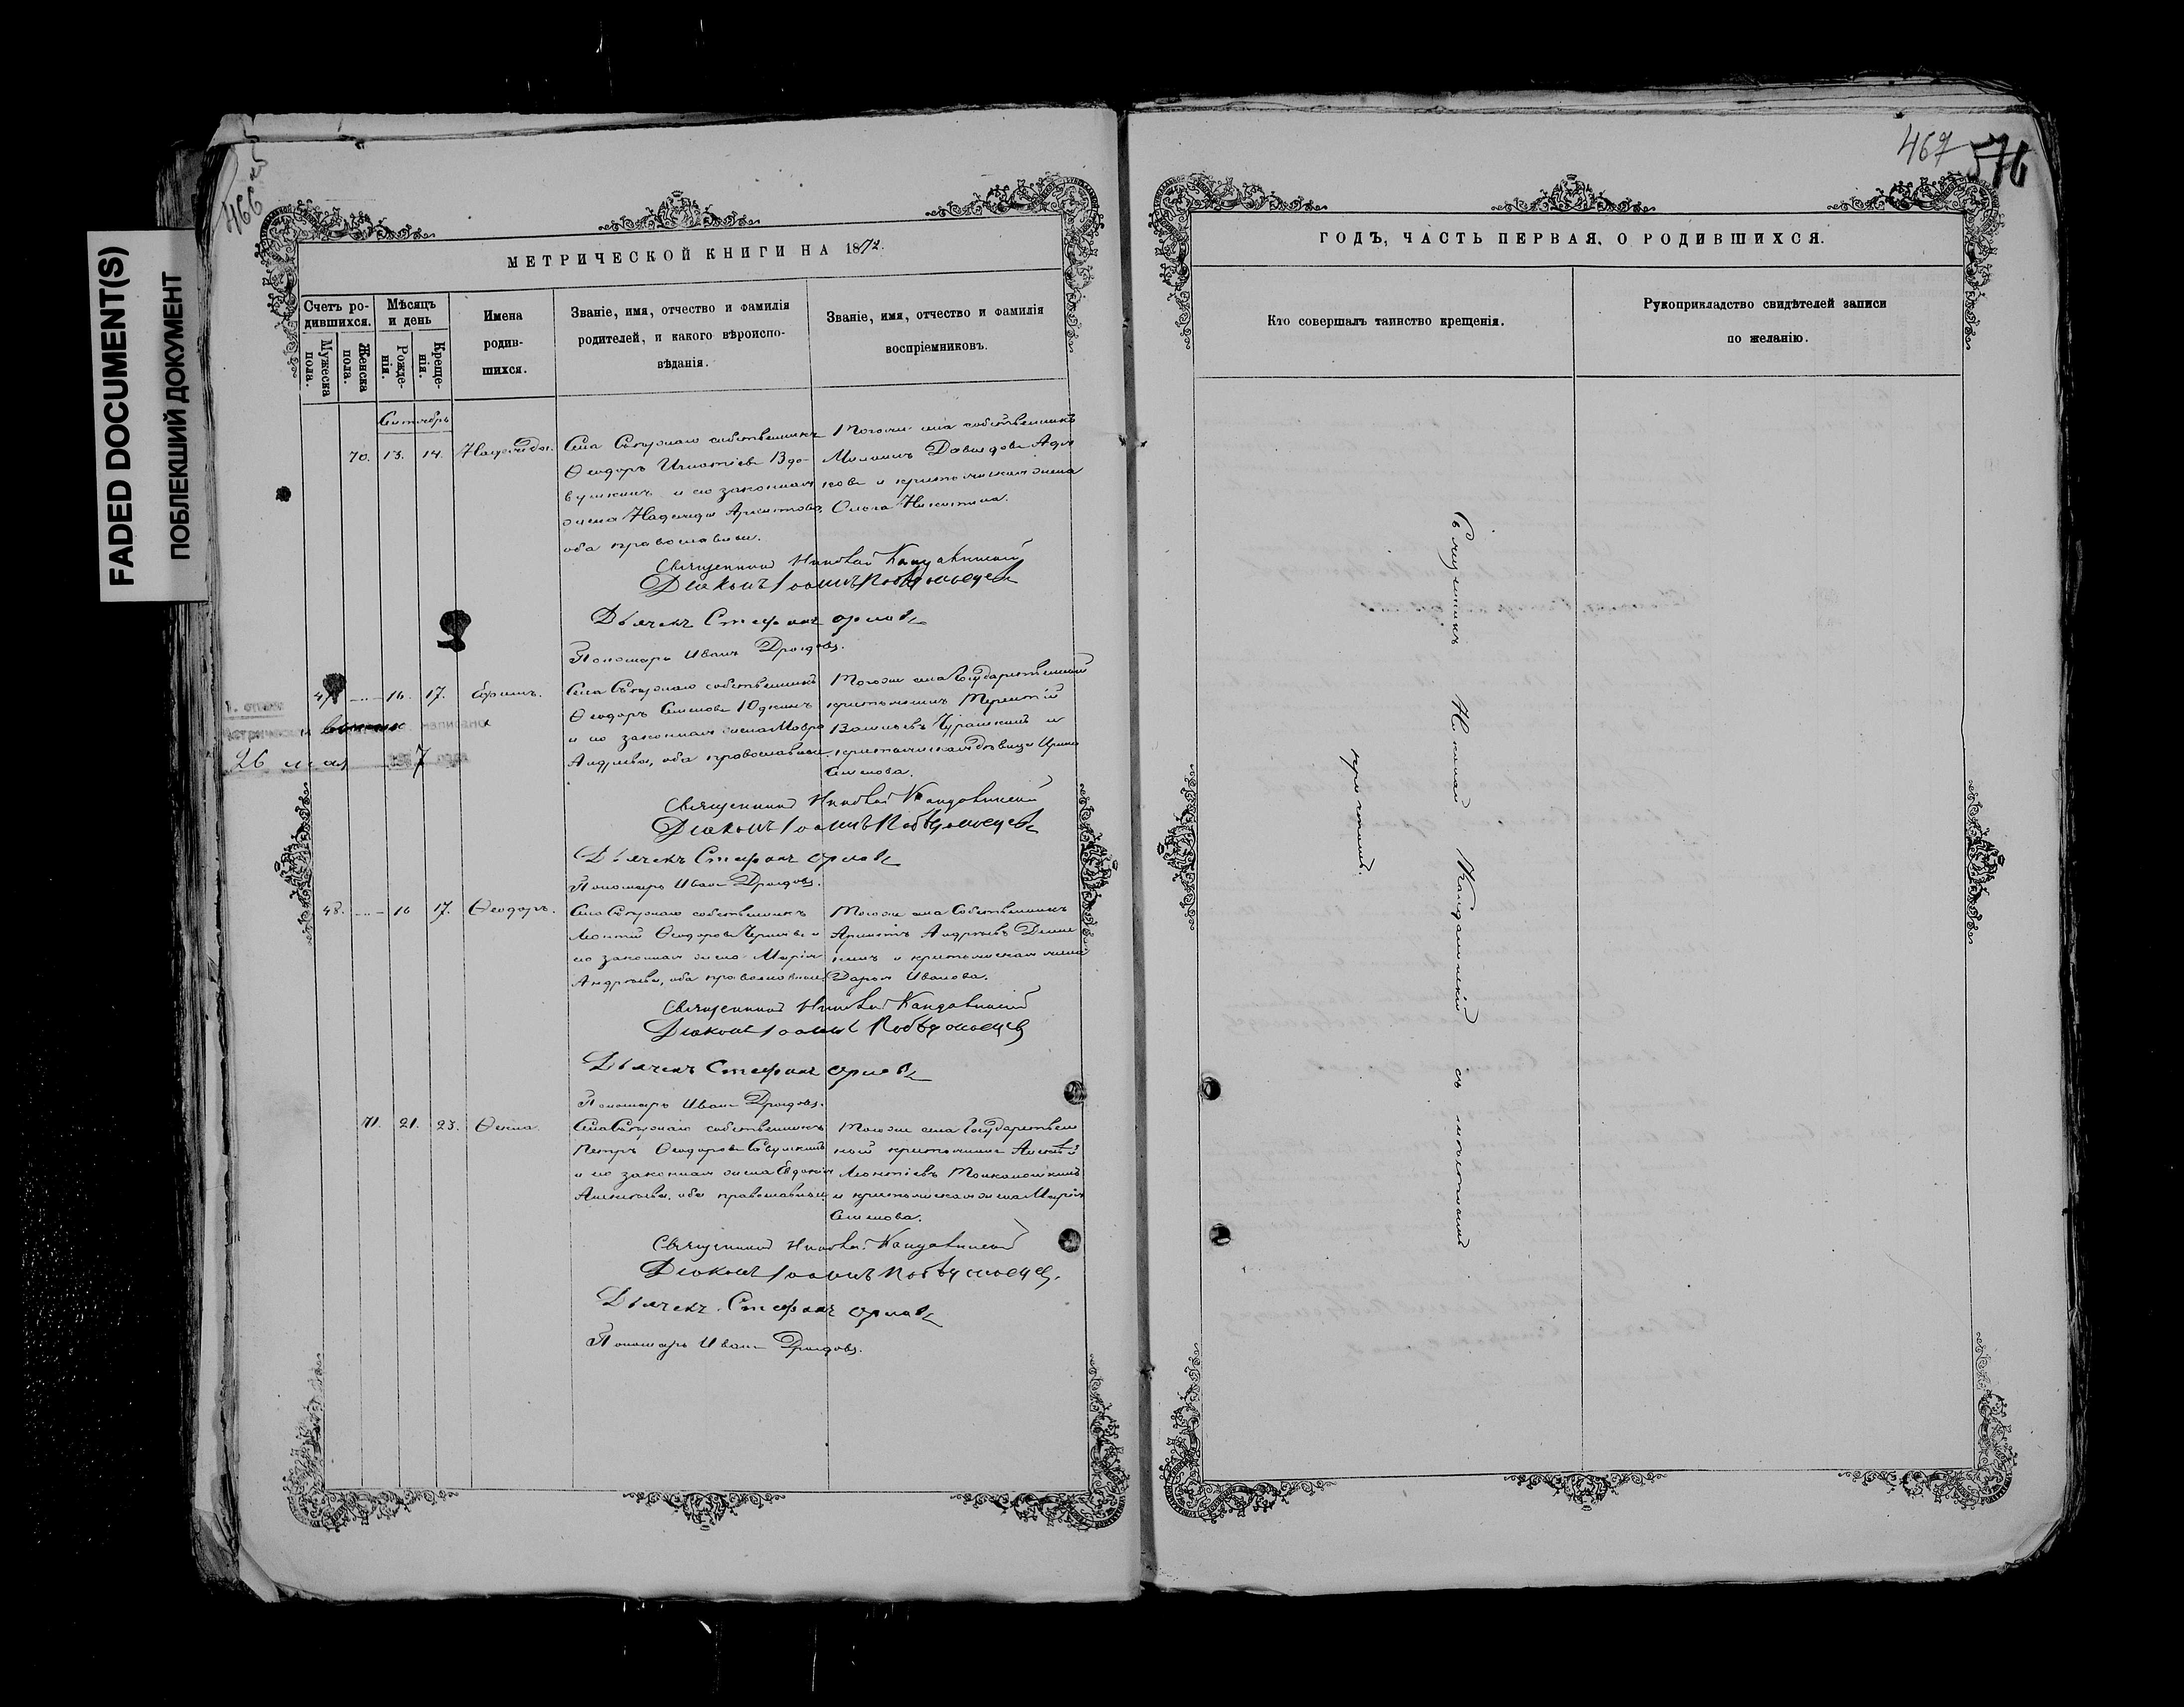 FADED DOCUMENT(S)
ПОБЛЕКШИЙ ДОКУМЕНТ
466
МЕТРИЧЕСКОЙ КНИГИ НА 1872.
Счетъ ро-
дившихся.
Мужеска
пола.
Женска
пола.
Мѣсяцъ
и день
Рожде-
нія.
Креще-
нія.
Имена
родив-
шихся.
Званіе, имя, отчество и фамилія
родителей, и какого вѣроиспо-
вѣданія.
Званіе, имя, отчество и фамилія
воспріемниковъ.
Сентябрь
70. 13. 14. Надежда.
Села собственникъ
Ѳеодоръ Игнатіевъ Вдо-
вушкинъ и его законная
жена Надежда
оба православные.
Тогоже села собственникъ
Давыдовъ
и крестьянская жена
Ольга Никитина.
Священникъ Николай Кандавинскій
Діаконъ Іоаннъ Побѣдоносцевъ
Дьячекъ Стефанъ Орловъ
Пономарь Иванъ Дроздовъ.
47 16. 17. Ефимъ.
Села собственникъ
Ѳеодоръ Семеновъ Юдкинъ
и его законная жена Мавра
Андреева, оба православные.
Тогоже села Государственный
крестьянинъ Терентій
Васильевъ Чурашкинъ и
крестьянская дѣвица Ирина
Семенова.
26 мая 7
Священникъ Николай Кандавинскій
Діаконъ Іоаннъ Побѣдоносцевъ
Дьячекъ Стефанъ Орловъ
Пономарь Иванъ Дроздовъ.
48. 16 17. Ѳеодоръ.
Села собственникъ
Леонтій Ѳеодоровъ и
его законная жена Марія
Андреева, оба православные.
Тогоже села Собственникъ
Андреевъ
и крестьянская жена
Дарья Иванова.
Священникъ Николай Кандавинскій
Діаконъ Іоаннъ Побѣдоносцевъ
Дьячекъ Стефанъ Орловъ
Пономарь Иванъ Дроздовъ.
71. 21. 23. Ѳекла.
Села собственникъ
Петръ Ѳеодоровъ
и его законная жена Евдокія
Алексѣева, оба православные.
Тогоже села Государствен
ный крестьянинъ Алексѣй
Леонтіевъ
и крестьянская жена Марія
Семенова.
Священникъ Николай Кандавинскій
Діаконъ Іоаннъ Побѣдоносцевъ.
Дьячекъ Стефанъ Орловъ
Пономарь Иванъ Дроздовъ.
467 576
ГОДЪ, ЧАСТЬ ПЕРВАЯ, О РОДИВШИХСЯ.
Кто совершалъ таинство крещенія.
Рукоприкладство свидѣтелей записи
по желанію.
Священникъ Николай Кандавинскій съ
причтомъ.